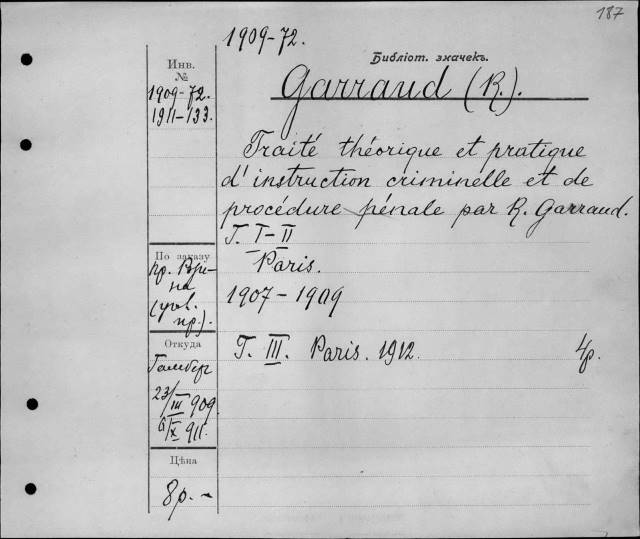 187
1909-72.
Библіот. значекъ.
Инв.
№
1909-72.
1911-133.
Garraud (R.).
Traité théorique et pratique
d'instruction criminelle et de
procédure pénale par R. Garraud.
T. I-II
Paris.
1907-1909
T. III. Paris. 1912. 4р.
По заказу
пр.
(угол.
пр.).
Откуда
Гамберг
23/III 909
6/X 911.
Цѣна
8р. -